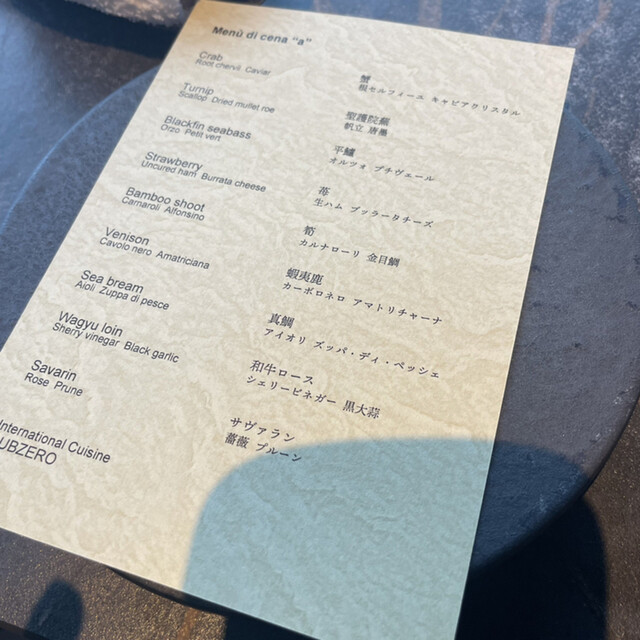 Menù di cena “a”
Crab
Root chervil Caviar
蟹
根セルフィーユ キャビアクリスタル
Turnip
Scallop Dried mullet roe
聖護院蕪
帆立 唐墨
Blackfin seabass
Orzo Petit vert
平鱸
オルツォ プチヴェール
Strawberry
Uncured ham Burrata cheese
苺
生ハム ブッラータチーズ
Bamboo shoot
Carnaroli Alfonsino
筍
カルナローリ 金目鯛
Venison
Cavolo nero Amatriciana
蝦夷鹿
カーボロネロ アマトリチャーナ
Sea bream
Aioli Zuppa di pesce
真鯛
アイオリ ズッパ・ディ・ペッシェ
Wagyu loin
Sherry vinegar Black garlic
和牛ロース
シェリービネガー 黒大蒜
Savarin
Rose Prune
サヴァラン
薔薇 プルーン
International Cuisine
UBZERO